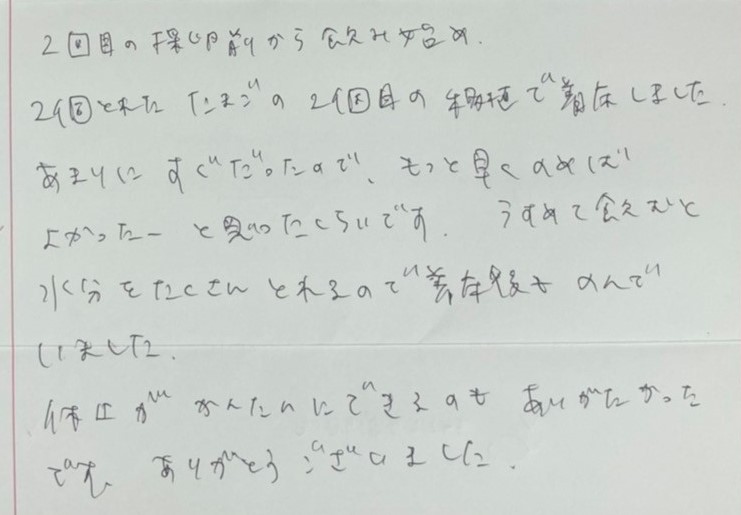 2回目の採卵前から飲み始め、
2個とれたたまごの2個目の移植で着床しました。
あまりにすぐだったので、もっと早くのめば
よかったーと思ったくらいです。うすめて飲むと
水分をたくさんとれるので着床後ものんで
いました。
休止がかんたんにできるのもありがたかった
です。ありがとうございました。